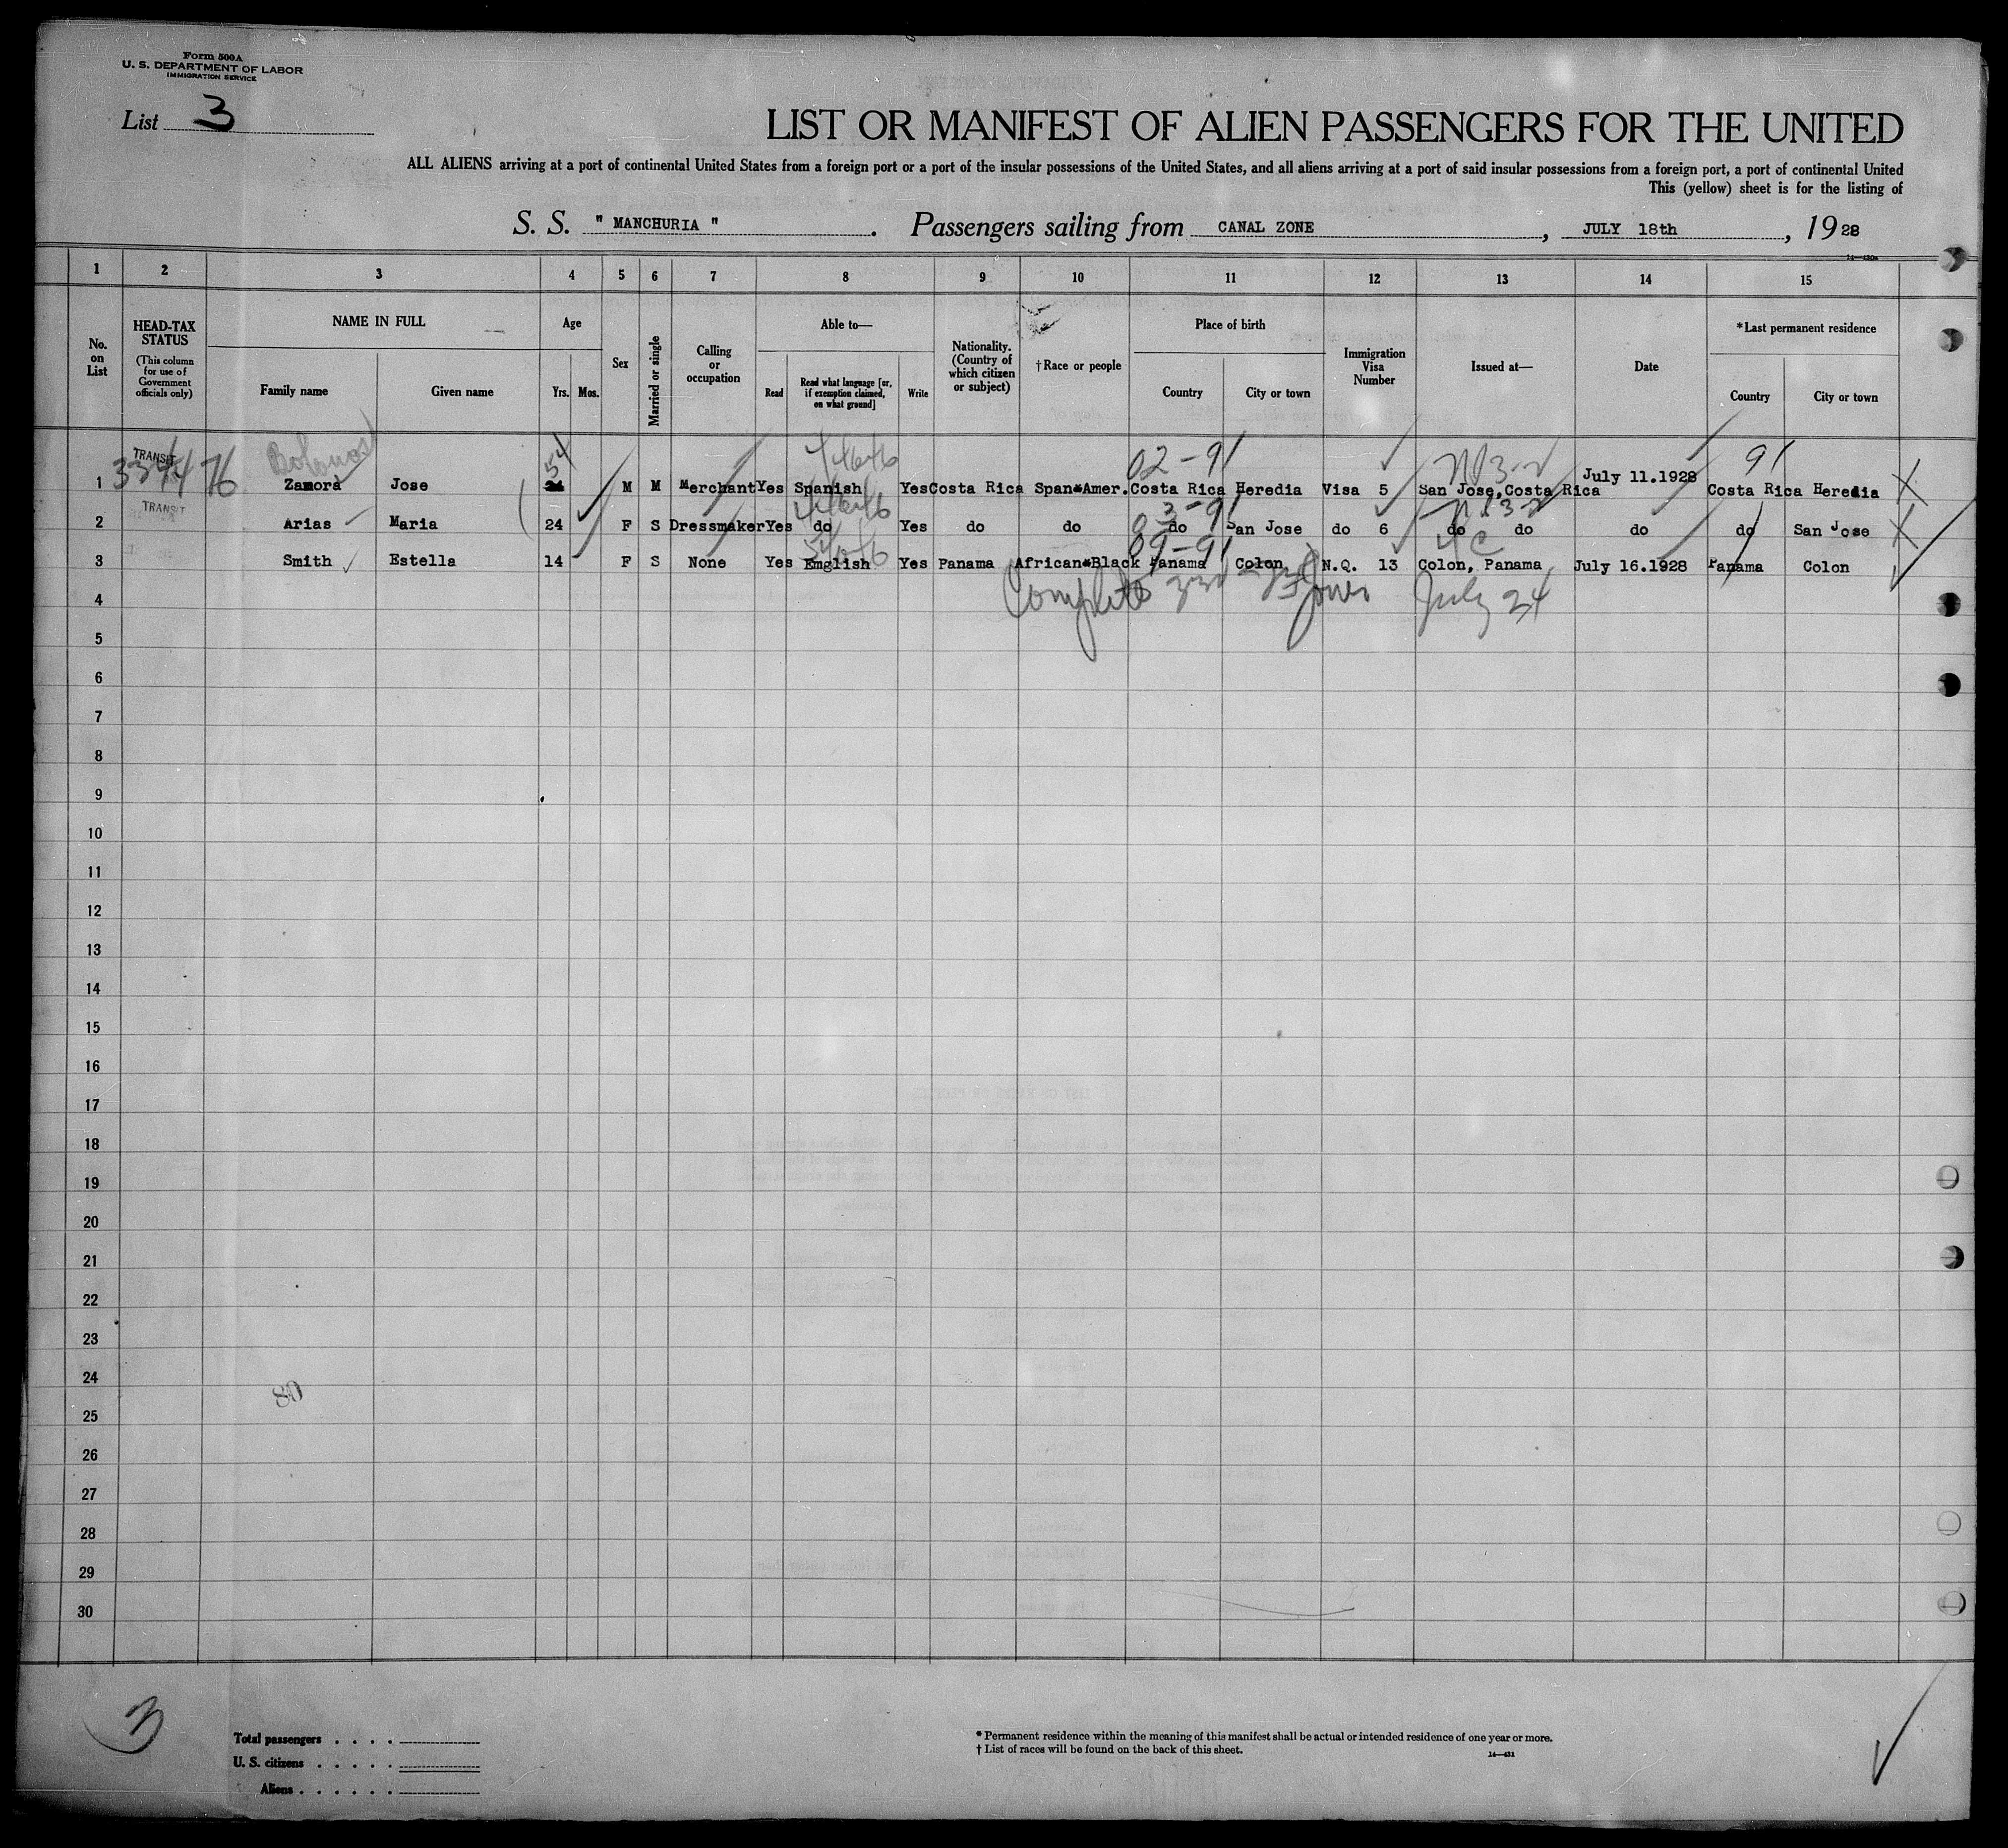 Form 500A
U. S. DEPARTMENT OF LABOR
IMMIGRATION SERVICE
List 3
LIST OR MANIFEST OF ALIEN PASSENGERS FOR THE UNITED
ALL ALIENS arriving at a port of continental United States from a foreign port or a port of the insular possessions of the United States, and all aliens arriving at a port of said insular possessions from a foreign port, a port of continental United
This (yellow) sheet is for the listing of
S. S. " MANCHURIA " . Passengers sailing from CANAL ZONE , JULY 18th , 1928
14—430a
1 2 3 4 5 6 7 8 9 10 11 12 13 14 15
No. on List
HEAD-TAX STATUS
(This column for use of Government officials only)
NAME IN FULL
Family name
Given name
Age
Yrs. Mos.
Sex
Married or single
Calling or occupation
Able to—
Read
Read what language [or, if exemption claimed, on what ground]
Write
Nationality. (Country of which citizen or subject)
†Race or people
Place of birth
Country
City or town
Immigration Visa Number
Issued at—
Date
*Last permanent residence
Country
City or town
TRANSIT
Bolanos 54 02-91 91
1 Zamora Jose M M Merchant Yes Spanish Yes Costa Rica Span*Amer. Costa Rica Heredia Visa 5 San Jose,Costa Rica July 11.1928 Costa Rica Heredia X
TRANSIT
03-91
2 Arias Maria 24 F S Dressmaker Yes do Yes do do do San Jose do 6 do do do do San Jose X
89-91
3 Smith Estella 14 F S None Yes Emglish Yes Panama African*Black Panama Colon N.Q. 13 Colon, Panama July 16.1928 Panama Colon
Complete Jones July 24
4
5
6
7
8
9
10
11
12
13
14
15
16
17
18
19
20
21
22
23
24
80
25
26
27
28
29
30
3
Total passengers
U. S. citizens
Aliens
* Permanent residence within the meaning of this manifest shall be actual or intended residence of one year or more.
† List of races will be found on the back of this sheet.
14—431